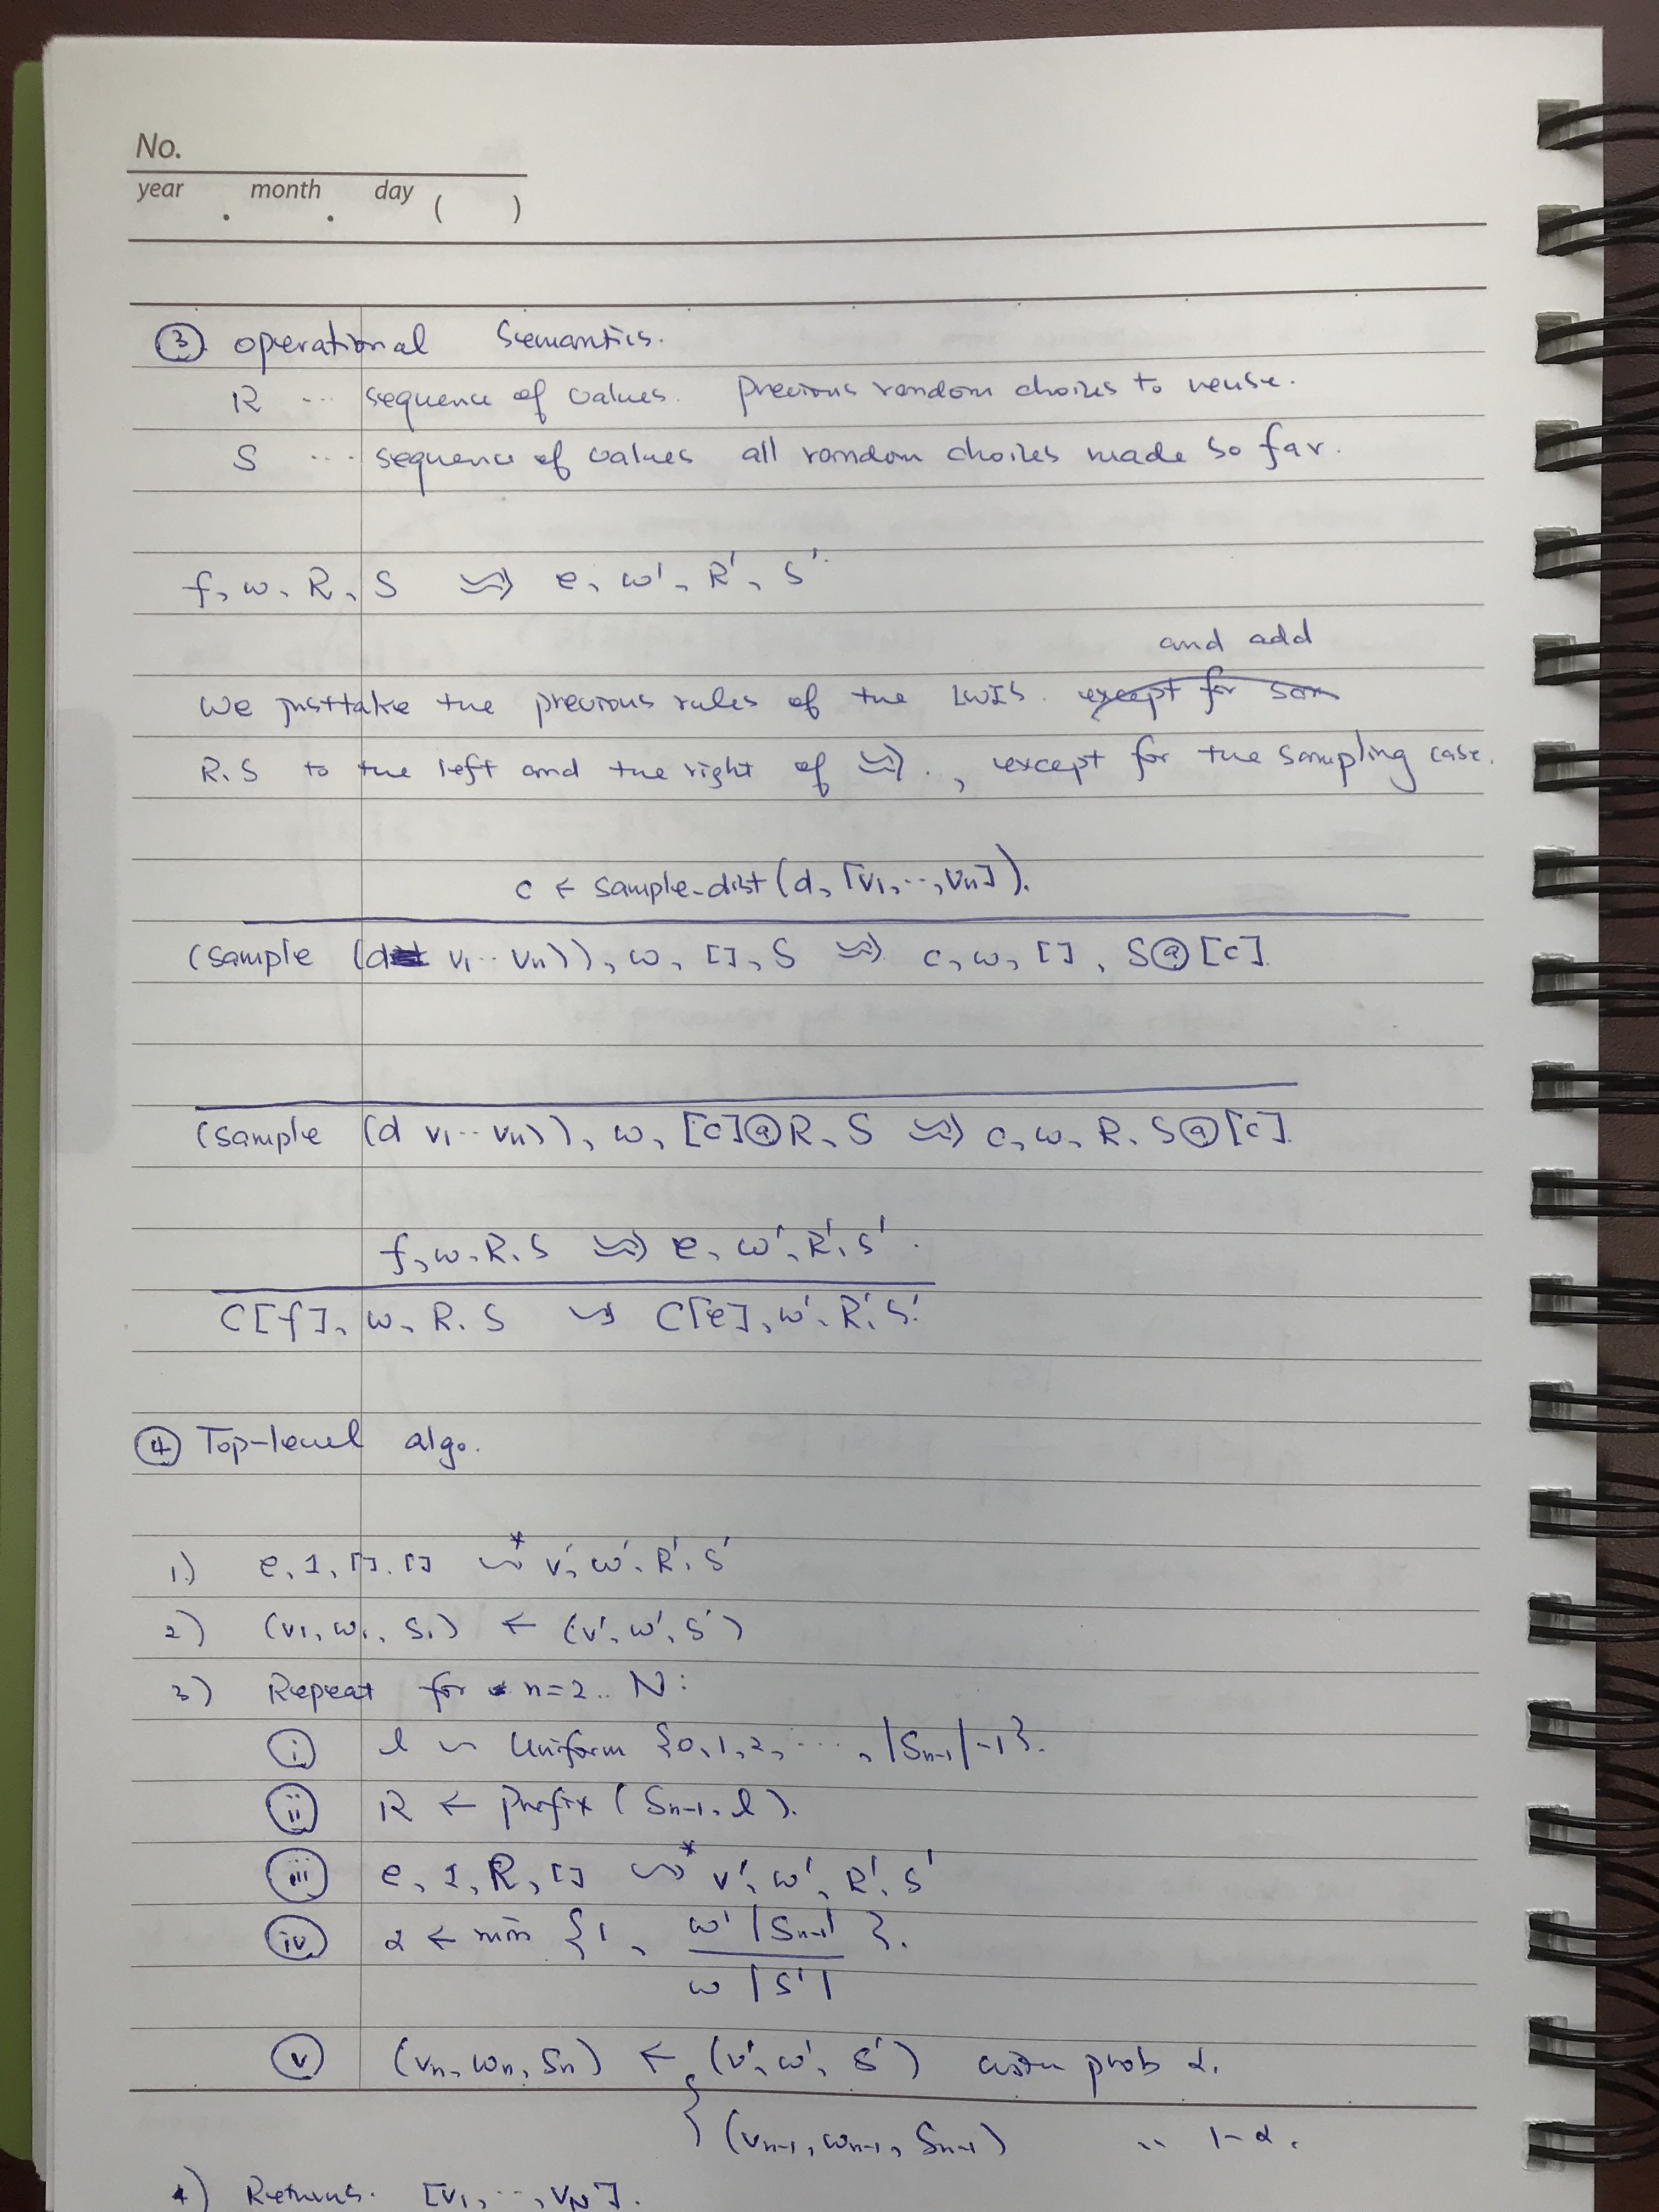 No.
year . month . day ( )
③ operational Semantics.
R ... sequence of values. Previous random choices to reuse.
S ... sequence of values all random choices made so far.
f, w, R, S ⇝ e, w', R', S'
and add
We just take the previous rules of the LWIS. except for som
R, S to the left and the right of ⇝ , except for the sampling case.
c ← sample-dist(d, [v1, .., vn]).
(sample (d v1 .. vn)), w, [], S ⇝ c, w, [], S@[c]
(sample (d v1 .. vn)), w, [c]@R, S ⇝ c, w, R, S@[c].
f, w, R, S ⇝ e, w', R', S'.
C[f], w, R, S ⇝ C[e], w', R', S'.
④ Top-level algo.
1) e, 1, [], [] ⇝* v', w', R', S'
2) (v1, w1, S1) ← (v', w', S')
3) Repeat for n=2.. N:
ⓘ l ~ Uniform {0,1,2, ..., |Sn-1|-1}.
ⅱ R ← Prefix (Sn-1, l).
ⅲ e, 1, R, [] ⇝* v', w', R', S'
ⅳ α ← min {1, w' |Sn-1| / w |S'| }.
ⅴ (vn, wn, Sn) ← (v', w', S') with prob α.
{ (vn-1, wn-1, Sn-1) .. 1-α.
4) Returns. [v1, .., vN].